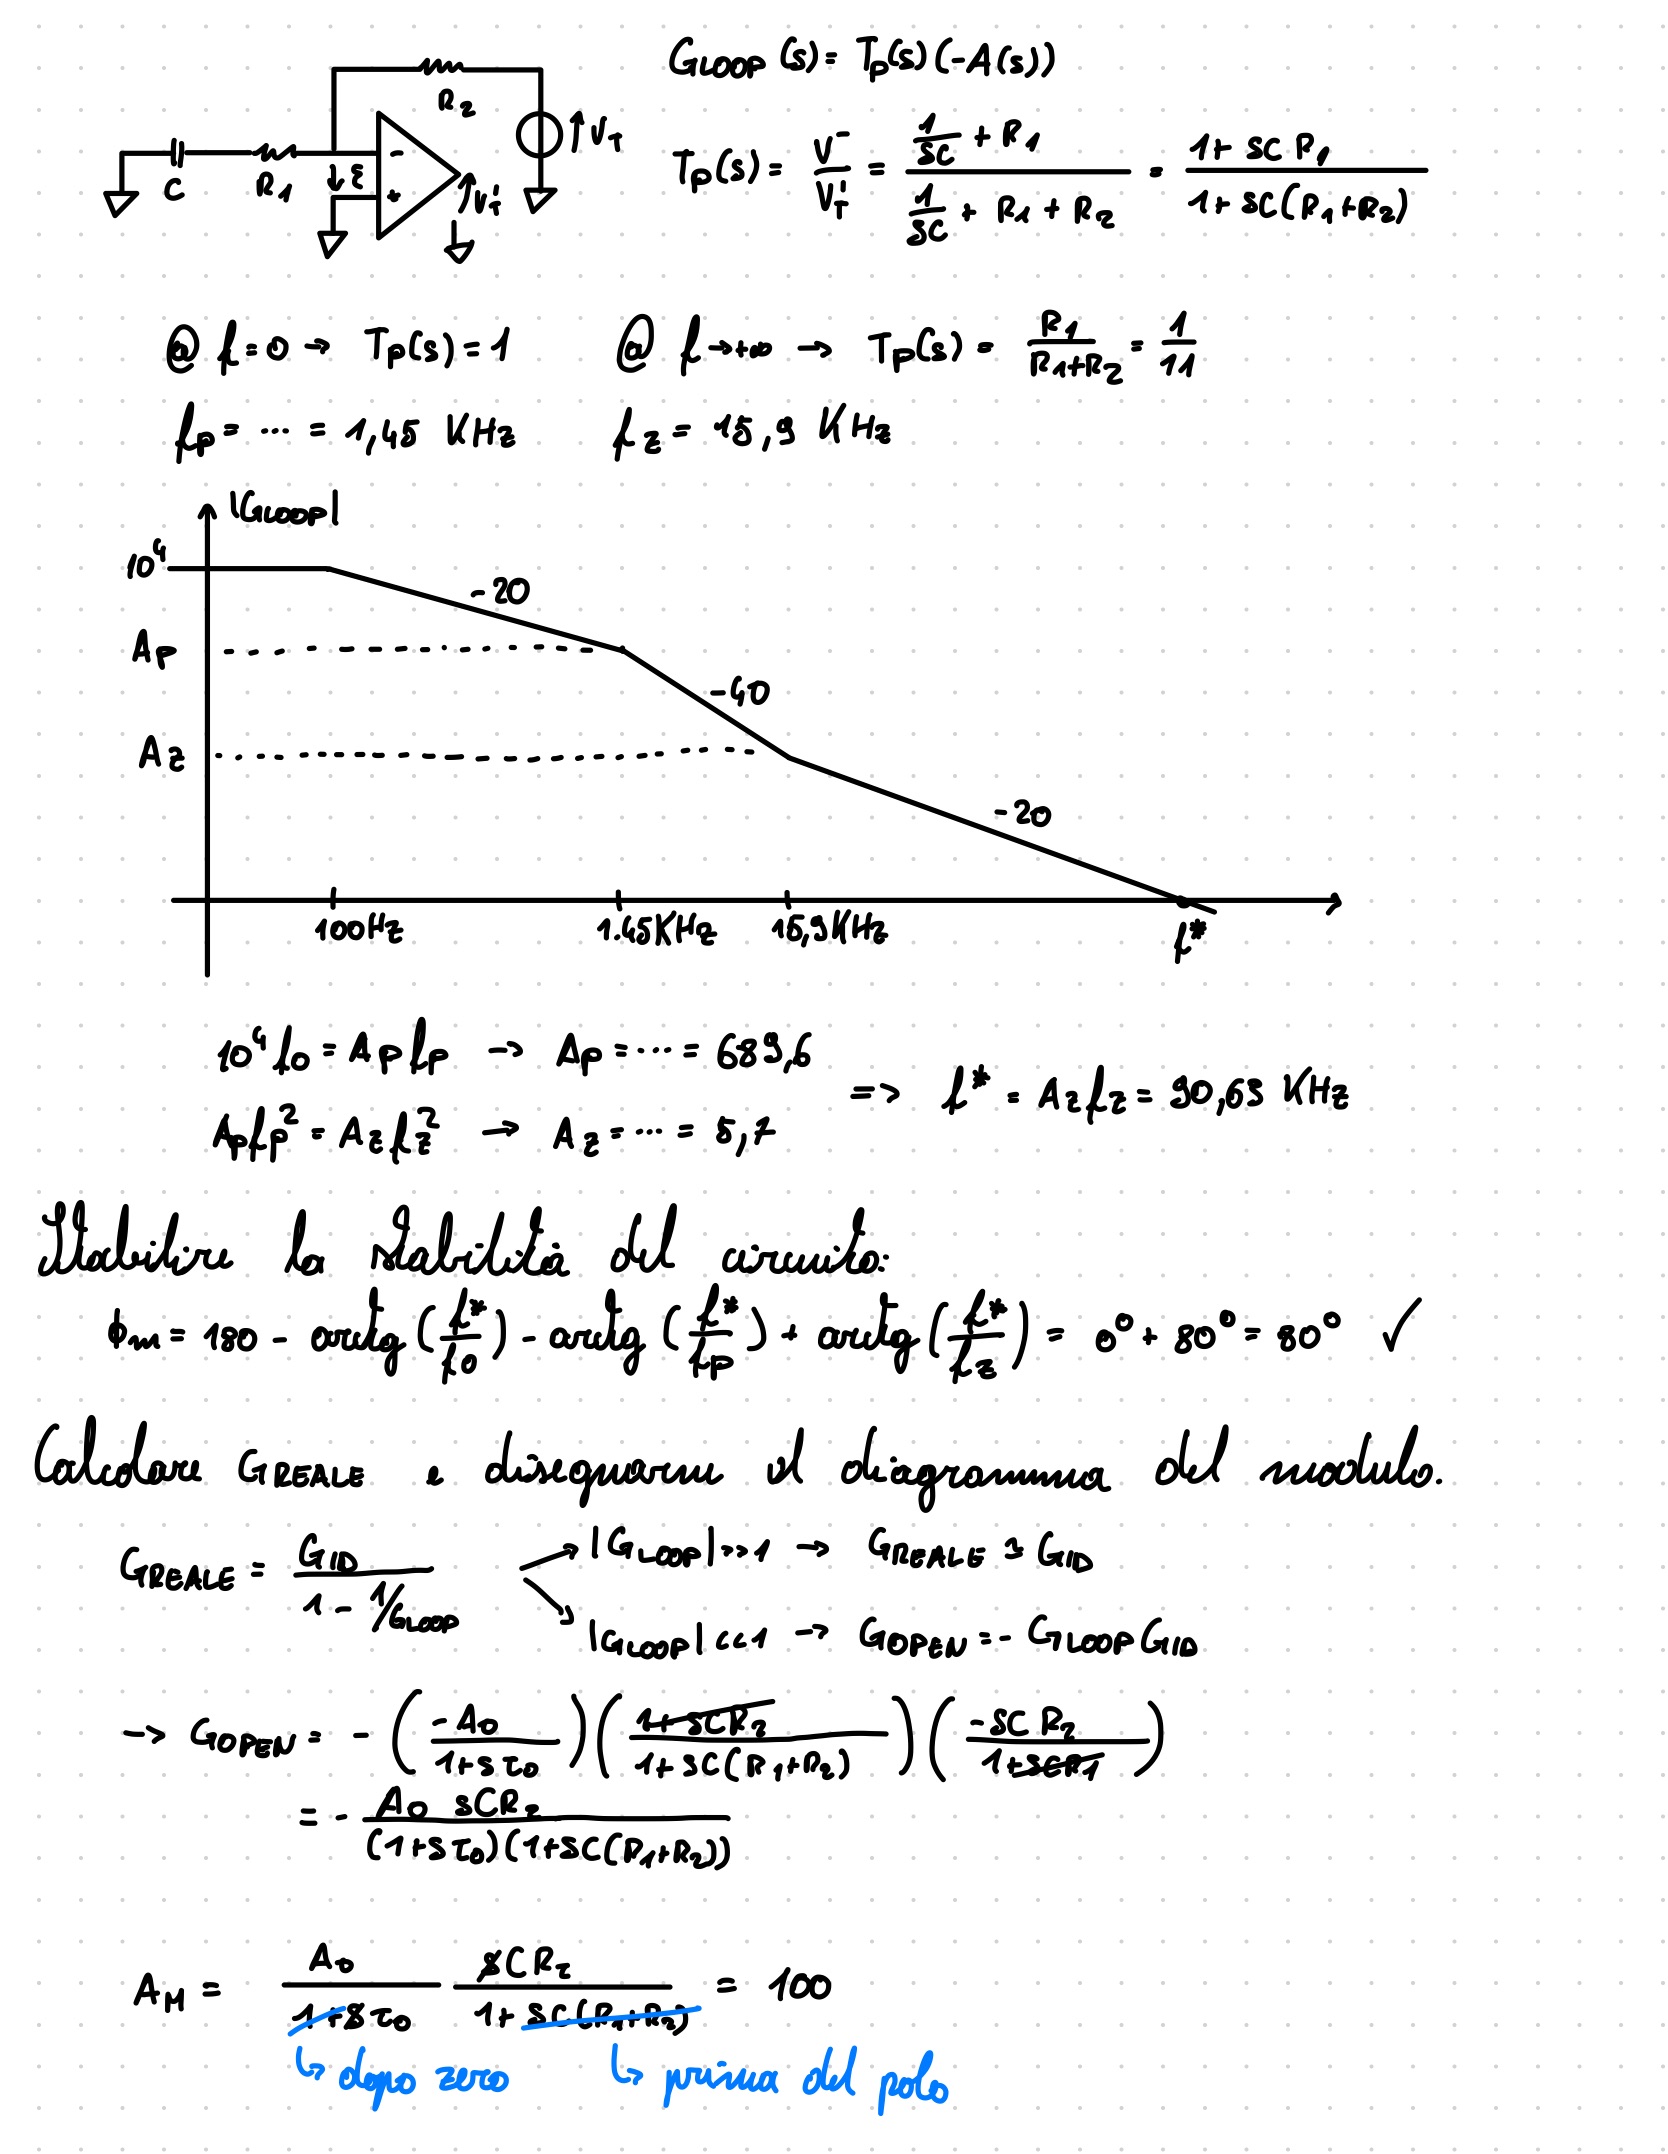 G_LOOP (s) = T_p(s) (-A(s))
R_2
V_T
C
R_1
ε
-
+
V_T'
T_p(s) = V^- / V_T' = (1/SC + R_1) / (1/SC + R_1 + R_2) = (1 + SC R_1) / (1 + SC(R_1+R_2))
@ f=0 → T_p(s) = 1 @ f→+∞ → T_p(s) = R_1 / (R_1+R_2) = 1/11
f_p = ... = 1,45 KHz f_z = 15,9 KHz
|G_LOOP|
10^4
-20
A_p
-40
A_z
-20
100Hz 1.45KHz 15,9KHz f*
10^4 f_0 = A_p f_p → A_p = ... = 689,6
=> f* = A_z f_z = 90,63 KHz
A_p f_p^2 = A_z f_z^2 → A_z = ... = 5,7
Stabilire la stabilità del circuito:
ϕ_m = 180 - arctg (f*/f_0) - arctg (f*/f_p) + arctg (f*/f_z) = 0° + 80° = 80° ✓
Calcolare G_REALE e disegnarne il diagramma del modulo.
G_REALE = G_ID / (1 - 1/G_LOOP)
|G_LOOP| >> 1 → G_REALE ≃ G_ID
|G_LOOP| << 1 → G_OPEN = - G_LOOP G_ID
→ G_OPEN = - (-A_0 / (1+Sτ_0)) ((1+SCR_2) / (1+SC(R_1+R_2))) (-SC R_2 / (1+SCR_1))
= - A_0 SCR_2 / ((1+Sτ_0)(1+SC(R_1+R_2)))
A_M = A_0 / (1+Sτ_0) SCR_2 / (1+SC(R_1+R_2)) = 100
↳ dopo zero ↳ prima del polo